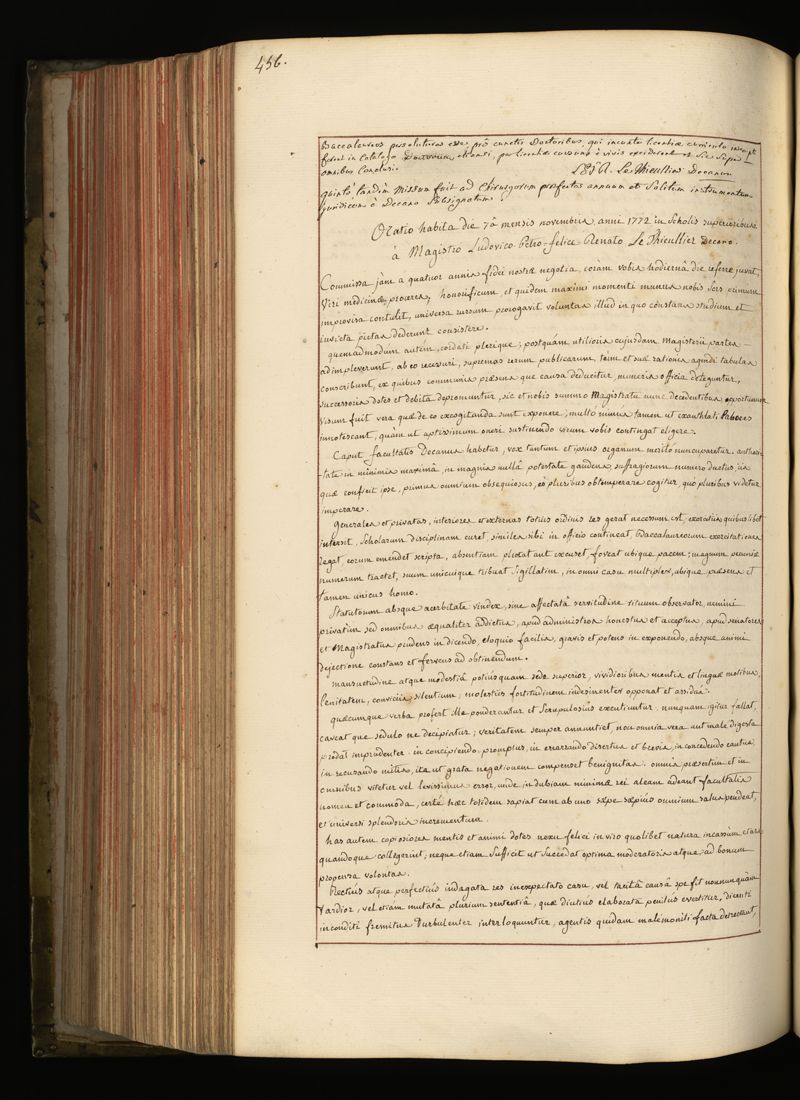 456.
Baccalaureos persoluturos esse pro cunctis Doctoribus, qui incunte licentiae curriculo
fuerint in Catalogo Doctorum etiamsi, per licentiae cursum è vivis excederent et sic super
omnibus Conclusi. L. P. F. R. Le Thieullier Decanus
Quintò tandem Missum fuit ad Chirurgorum praefectos annuum et Solitum instrumentum
juridicum à Decano Subsignatum.
Oratio habita die 7â mensis novembris anni 1772 in Scholis superioribus
à Magistro Ludovico-Petro-felice Renato Le Thieullier Decano.
Commissa jàm a quatuor annis fidei nostrae negotia, coràm vobis hodiernâ die referre juvat,
Viri medicinae proceres, honorificum, et quidem maximi momenti munus nobis sors
improvisa contulit, universa rursum prorogavit voluntas illud in quo constans studium et
invicta pietas dederunt consistere.
quemadmodum autem, cordati plerique, postquàm utilioris cujusdam Magisterii partes
adimpleverunt, ab eo recessuri, supremas rerum publicarum, tùm et suae rationis agendi tabulas
conscribunt, ex quibus communis praesens que causa deducitur, muneris officia deteguntur,
successoris dotes et debita depromuntur, sic et nobis summo Magistratu nunc decedentibus opportunum
visum fuit vera quae de eo excogitanda sunt exponere; nullo minus tamen ut exanthlati labores
innotescant, quàm ut aptissimum oneri sustinendo virum vobis contingat eligere.
Caput facultatis Decanus habetur, vox tantum et ipsius organum meritò nuncuparetur. authori-
tate in minimis maximâ, in magnis nullâ potestate gaudens, suffragiorum numero ductus, iis
quae conficit ipse, primus omnium obsequiosus, eò pluribus obtemperare cogitur, quò pluribus videtur
imperare.
Generales et privatas, interiores et externas totius ordinis res gerat necessum est, exercitiis quibuslibet
intersit, Scholarum disciplinam curet, similes sibi in officio contineat, Baccalaureorum exercitationes
regat, eorum emendet scripta, absentiam plectat aut excuset, foveat ubique pacem; magnum pecuniae
numerum tractet, suum unicuique tribuat sigillatim, in omni casu multiplex, ubique praesens et
tamen unicus homo.
Statutorum absque acerbitate vindex, sine affectatâ servitudine rituum observator, nemini
privatim sed omnibus aequaliter addictus, apud administros honestus et acceptus, apud senatores
et Magistratus prudens in dicendo, eloquio facilis, gravis et potens in exponendo, absque animi
dejectione constans et fervens ad obtinendum.
mansuetudine atque modestiâ potiusquam sede superior, vividioribus mentis et linguae motibus,
lenitatem, conviciis silentium, molestiis fortitudinem indesinenter opponat et assiduè.
quaecumque verba profert ille ponderantur et scrupulosius excutiuntur. nunquam igitur fallat,
caveat que sedulo ne decipiatur; veritatem semper annuntiet, non omnia vera aut male digesta
prodat imprudenter. in concipiendo promptus, in enarrando disertus et brevis, in concedendo cautus,
in recusando mitis, ità ut grata negationem compenset benignitas. omnia praesertim et in
omnibus vitetur vel levissimus error, unde in dubiam minimae rei aleam adeant facultatis
nomen et commoda, certè haec totidem sapiat cum ab uno saepe saepius omnium salus pendeat,
et universi splendoris incrementum.
has autem copiosiores mentis et animi dotes nexu felici in viro quolibet natura incassum
quandoque collegerint, neque etiam sufficit ut succedat optima moderatoris atque ad bonum
propensa voluntas.
Rectius atque perfectius indagata res inexpectato casu, vel tacitâ causâ spe fit nonnunquam
tardior, vel etiam mutatâ plurium sententiâ, quae diutius elaborata penitus evertitur, dicenti
inconditi fremitus turbulenter interloquuntur, agentis quidam malemoniti facta detrectant,